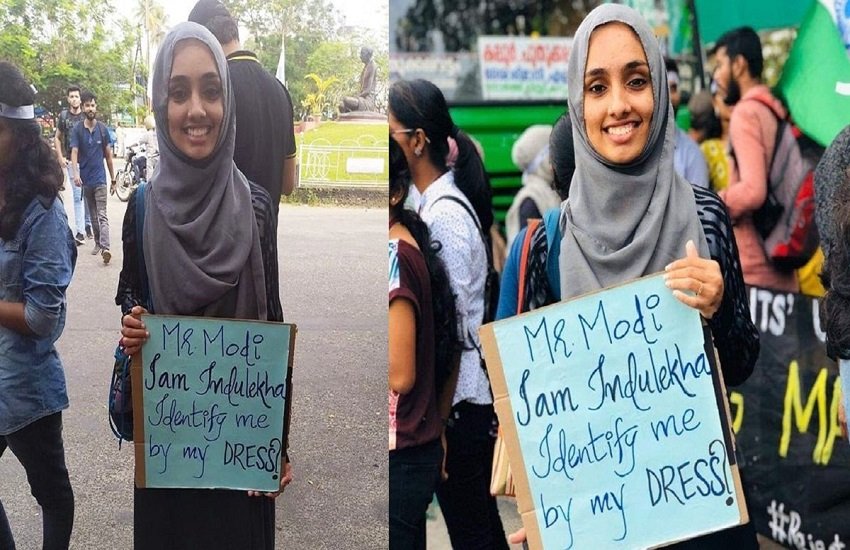 Mr. Modi
I am Indulekha
Identify me
by my DRESS?
Mr. Modi
I am Indulekha
Identify me
by my DRESS?
ITS'
MA